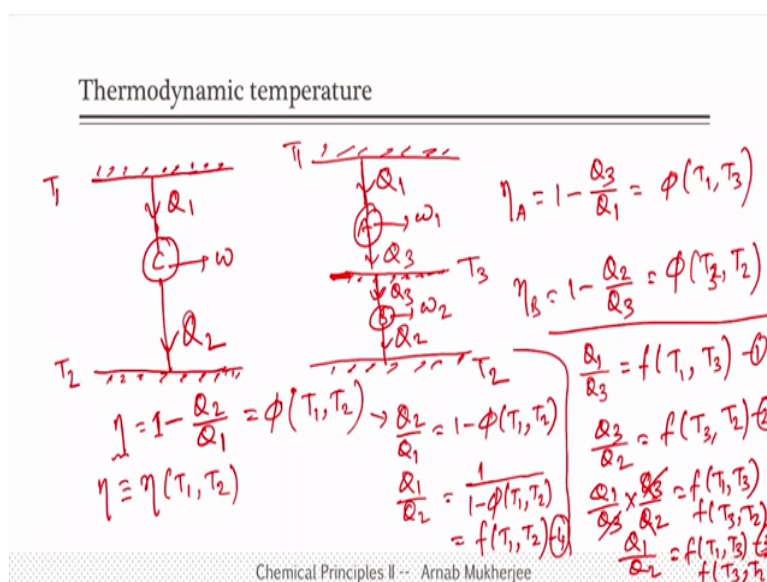 Thermodynamic temperature
T₁
Q₁
C → w
Q₂
T₂
η = 1 - Q₂/Q₁ = φ(T₁, T₂) → Q₂/Q₁ = 1 - φ(T₁, T₂)
η ≡ η(T₁, T₂)
Q₁/Q₂ = 1/(1 - φ(T₁, T₂))
= f(T₁, T₂) - ④
T₁
Q₁
A → w₁
Q₃
T₃
Q₃
B → w₂
Q₂
T₂
η_A = 1 - Q₃/Q₁ = φ(T₁, T₃)
η_B = 1 - Q₂/Q₃ = φ(T₃, T₂)
Q₁/Q₃ = f(T₁, T₃) - ①
Q₃/Q₂ = f(T₃, T₂) - ②
Q₁/Q₃ × Q₃/Q₂ = f(T₁, T₃)
f(T₃, T₂)
Q₁/Q₂ = f(T₁, T₃)
f(T₃, T₂
Chemical Principles II -- Arnab Mukherjee